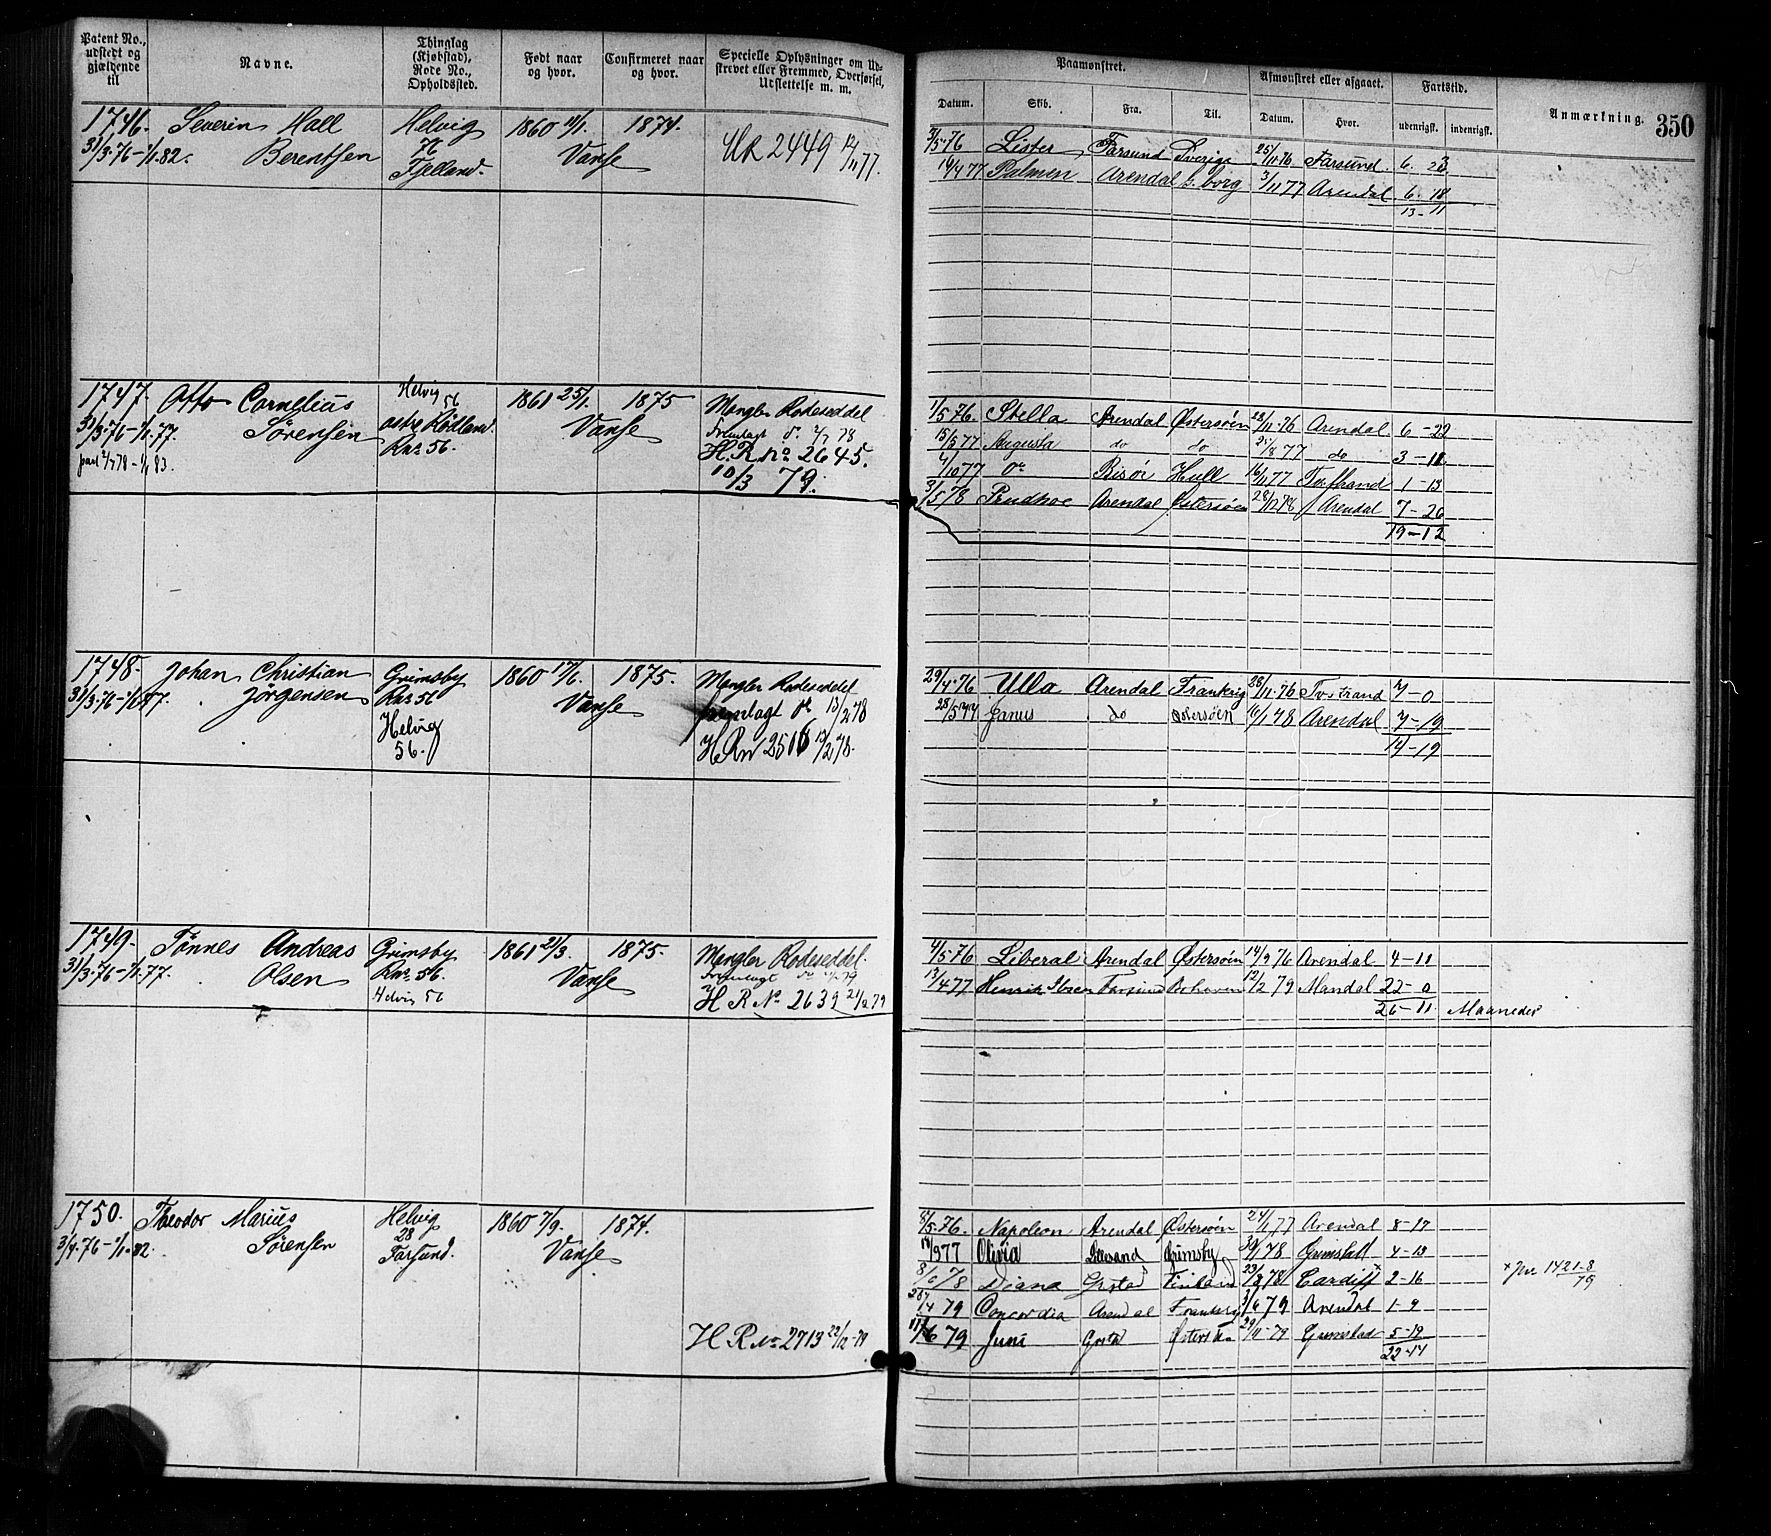 Patent No., udstedt og gjældende til
Navne.
Thinglag (Kjøbstad), Rode No., Opholdssted.
Født naar og hvor.
Confirmeret naar og hvor.
Specielle Oplysninger om Udstrevet eller Fremmed, Overførsel, Udslettelse m. m.
Paamønstret.
Afmønstret eller afgaaet.
Fartstid.
Anmærkning.
350
Datum.
Skib.
Fra.
Til.
Datum.
Hvor.
udenrigsk.
indenrigsk.
1746. Severin Hall Helvig 1860 11/1. 1874.
31/3·76-1/1.82. Berentsen 76 Vanse HR 2449 12/11 77.
Fjelland.
7/5·76 Lister Farsund Sverige 25/11·76 Farsund. 6. 23
14/4 77 Palmen Arendal 3/11 77 Arendal 6-18
13-11
1747. Otto Cornelius Helvig 56 1861 25/1. 1875 Mangler Rodeseddel
31/3·76-1/1.77. Sørensen østre Rødland. Vanse Fremlagt d. 2/7 78
2/7 78-1/1 83. Rno 56. H.R No 2645.
10/3 79.
1/5 76. Stella Arendal Østersøen 23/11·76 Arendal. 6-22
15/5 77 Augusta do do 25/8 77 do 3-11
4/10 77 do Risør Hull 16/11 77 1-13
3/5 78 Prudhoe Arendal Østersøen 28/12 78 Arendal 7-26
19-12
1748. Johan Christian Grimsby 1860 17/6. 1875. Mangler Rodeseddel
31/3·76-1/1.77. Jørgensen Rno 56 Vanse fremlagt d. 13/2 78
Helvig HRno 2516 13/2 78.
56.
29/4·76 Ulla Arendal Frankrig 28/11·76 Tvestrand 7-0
28/5 77 Janus do Østersøen 16/1 78 Arendal 7-19
14-19
1749. Tønnes Andreas Grimsby 1861 21/3. 1875. Mangler Rodeseddel.
31/3·76-1/1.77. Olsen Rno 56. Vanse Fremlagt
Helvig 56 H R No 2639 21/2 79
4/5·76 Liberal Arendal Østersøen 14/9 76 Arendal 4-11
13/4 77 Henrik Ibsen Farsund 12/2 79 Mandal 22-0
26-11 Maaneder
1750. Theodor Marius Helvig 1860 7/9. 1874.
3/4·76-1/1.82. Sørensen 28 Vanse
Farsund.
H R No 2713 22/12-79
8/5·76. Napoleon Arendal Østersøen 24/1 77 Arendal 8-17
18/9 77 Olivia Grimsby 78 Grimstad 4-13
8/6 78 Diana Finland 23/8 78 Cardiff 2-16
14 79 Concordia Arendal Frankrig 3/6 79 Arendal 1-9
11/6 79 Juni 29/11-79 Grimstad 5-19
22-14